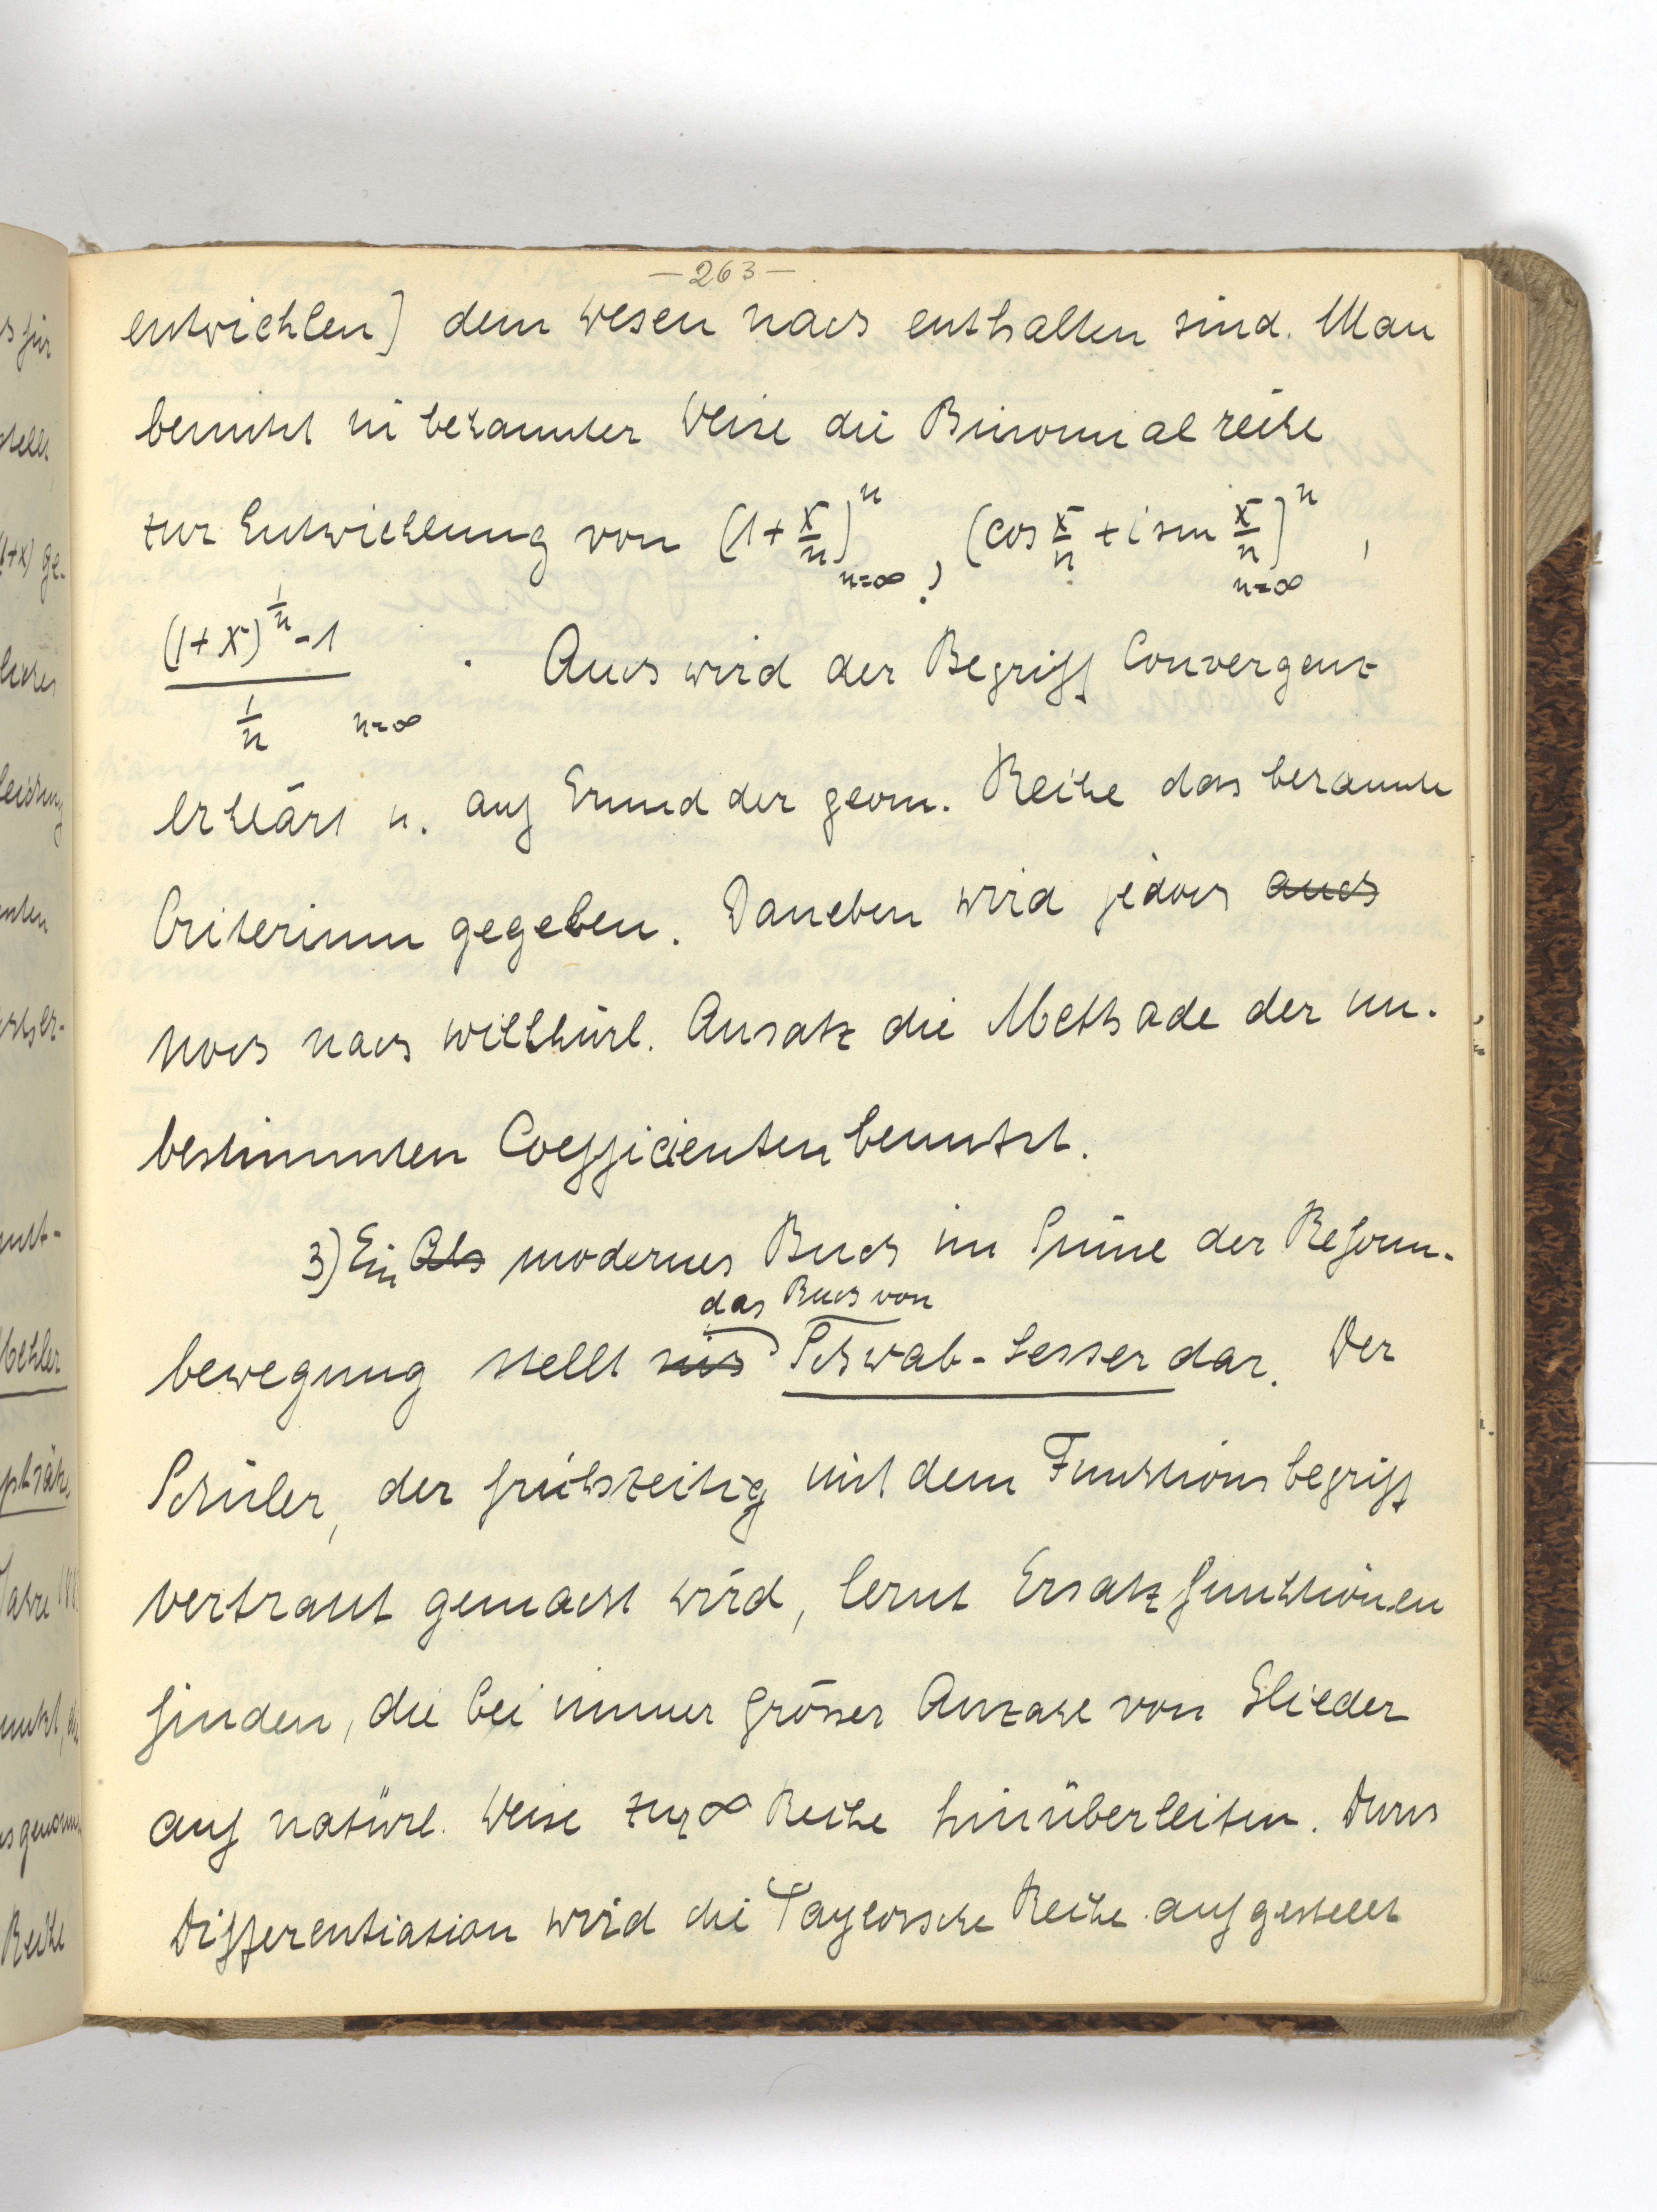 — 263 —
entwickeln] dem Wesen nach enthalten sind. Man
benützt in bekannter Weise die Binomialreihe
zur Entwicklung von (1+x/n)^n n=∞, (cos x/n + i sin x/n)^n n=∞,
((1+x)^(1/n) - 1)/(1/n) n=∞. Auch wird der Begriff Convergenz
erklärt u. auf Grund der geom. Reihe das bekannte
Criterium gegeben. Daneben wird jedoch auch
noch nach willkürl. Ansatz die Methode der un-
bestimmten Coefficienten benutzt.
3) Ein Als modernes Buch im Sinne der Reform-
das Buch von
bewegung stellt sich Schwab-Lesser dar. Der
Schüler, der frühzeitig mit dem Funktionsbegriff
vertraut gemacht wird, lernt Ersatzfunktionen
finden, die bei immer grösser Anzahl von Glieder
auf natürl. Weise zur ∞ Reihe hinüberleiten. Durch
Differentiation wird die Taylorsche Reihe aufgestellt